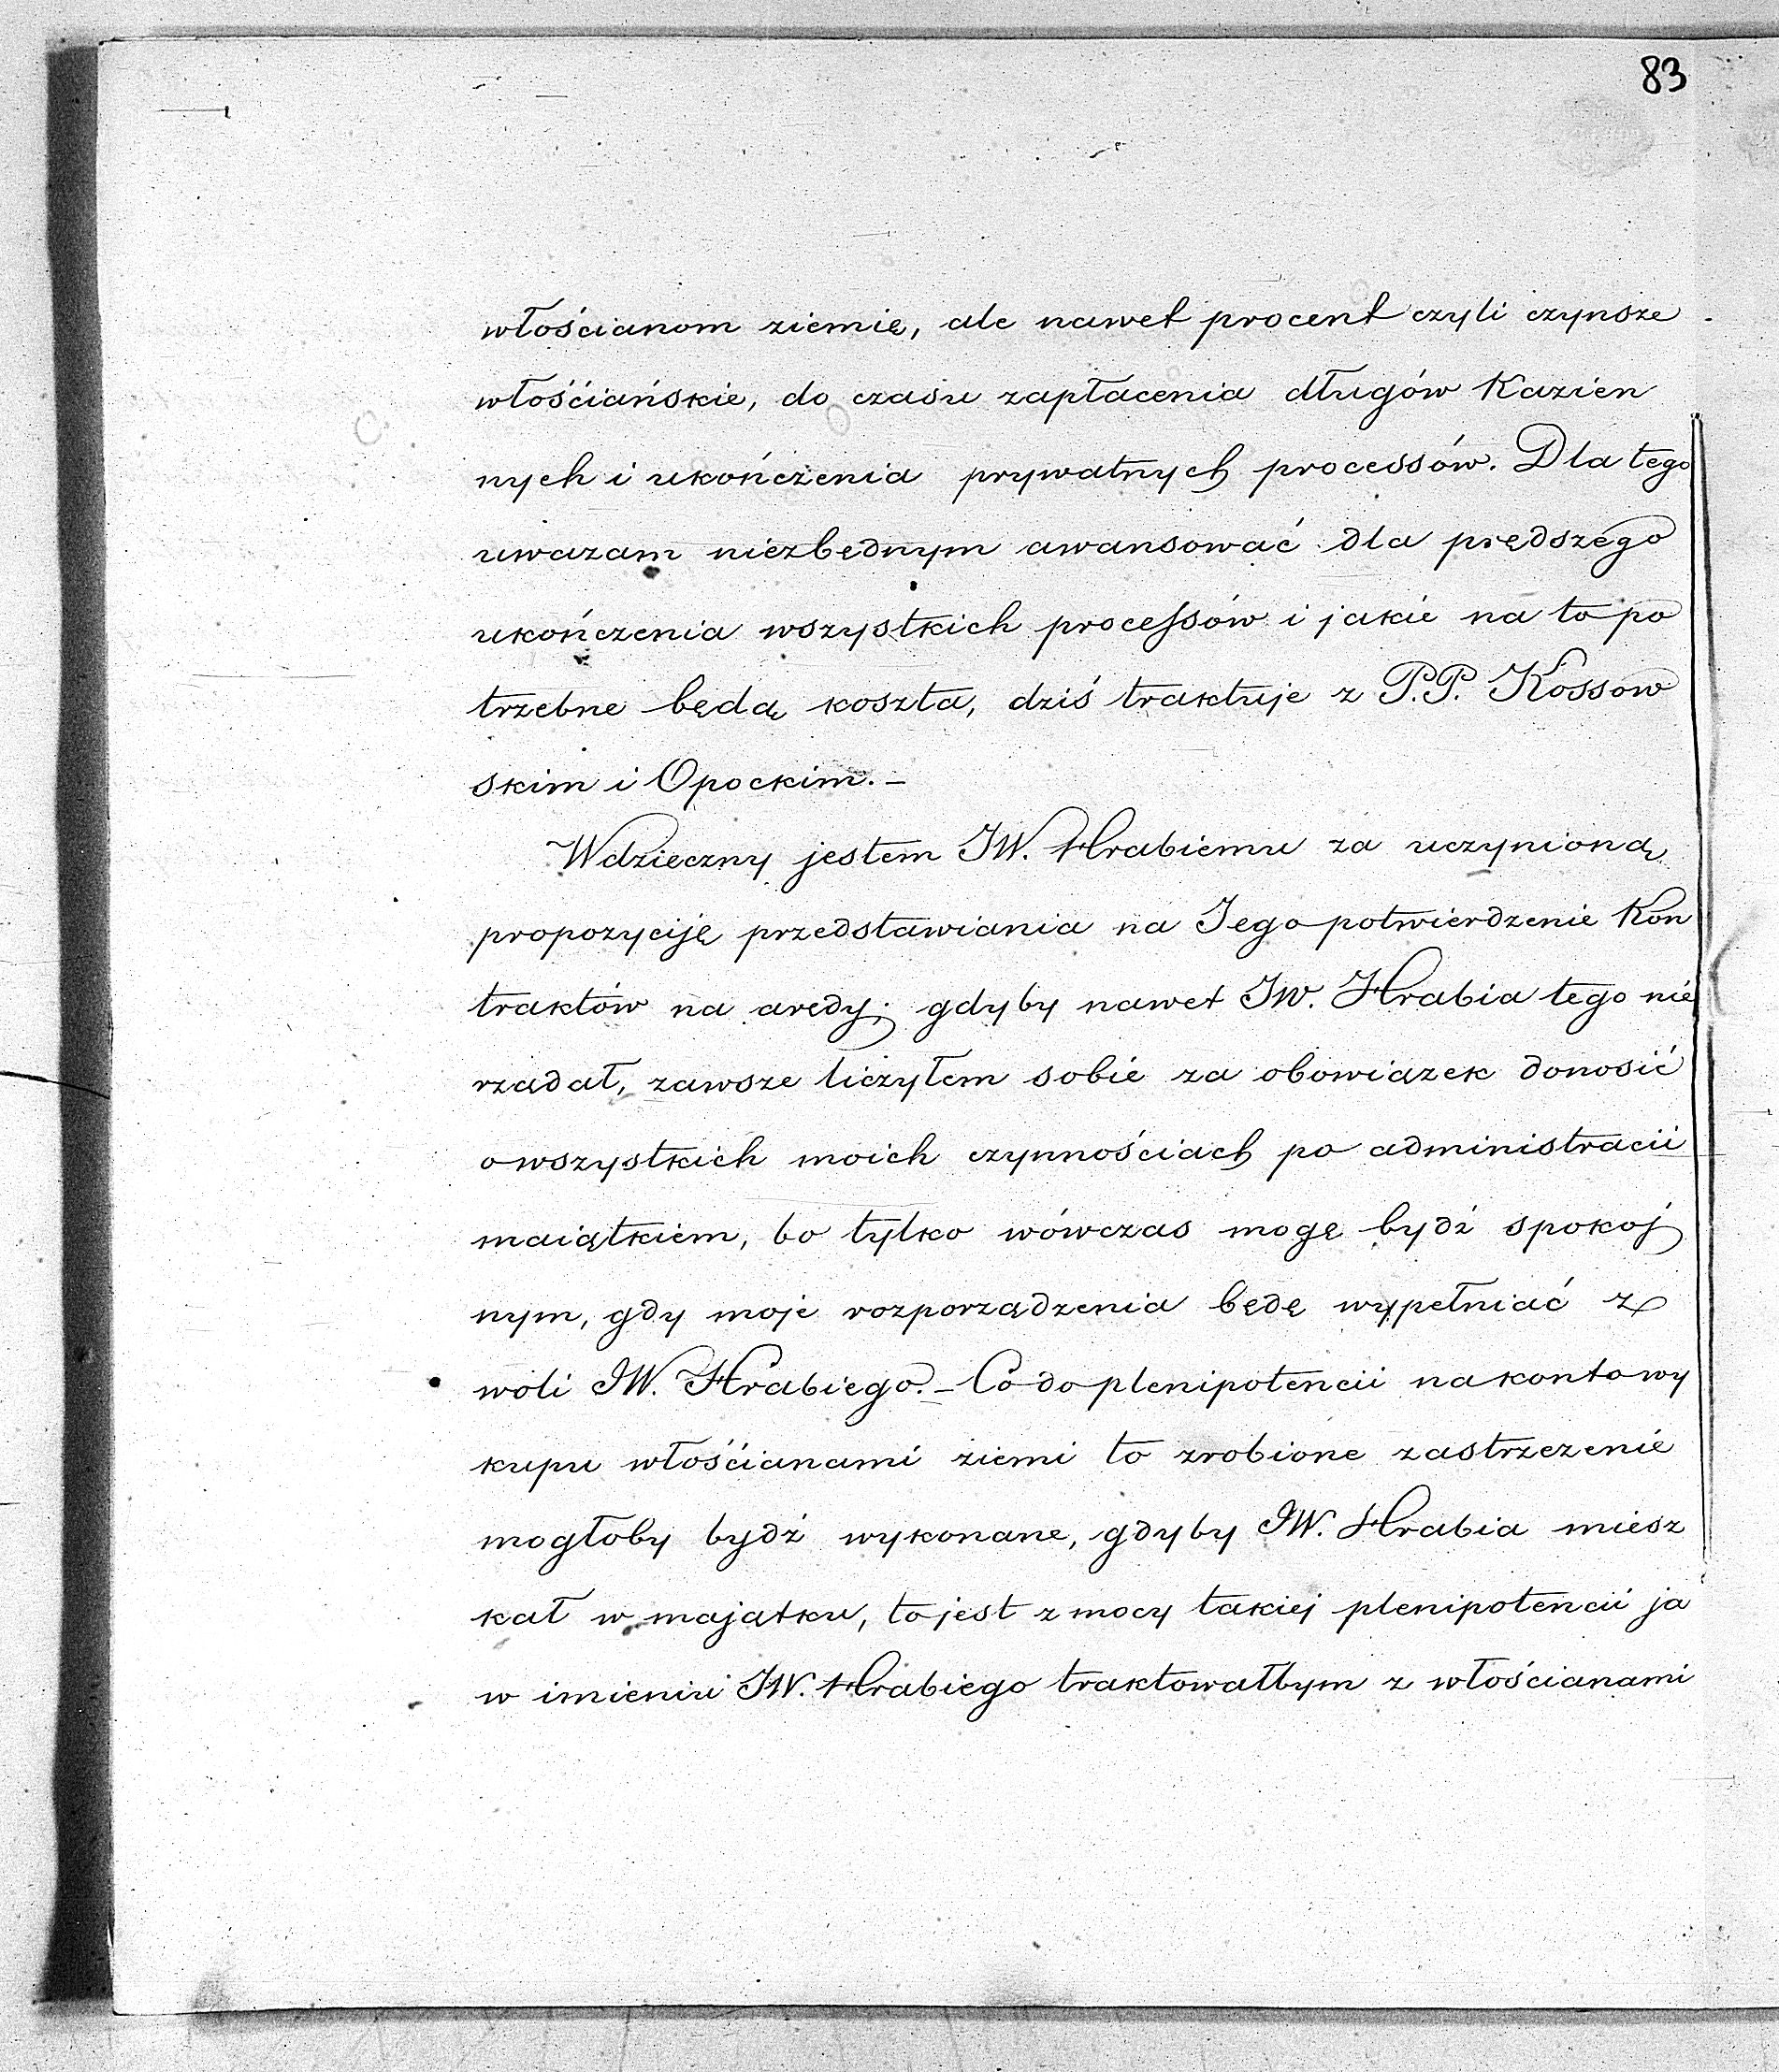 83
włościanom ziemię, ale nawet procent czyli czynsze
włośćiańskie, do czasu zapłacenia długów Kazien
nych i ukończenia prywatnych processów. Dla tego
uwazam niezbędnym awansować dla prędszego
ukończenia wszystkich processów i jakie na to po
trzebne będą koszta, dziś traktuje z P.P. Kossow
skim i Opockim. –
Wdzięczny jestem JW. Hrabiemu za uczynioną
propozyciję przedstawiania na Jego potwierdzenie Kon
traktów na arędy; gdyby nawet JW. Hrabia tego nie
rządał, zawsze liczyłem sobie za obowiązek donosić
o wszystkich moich czynnościach po administracii
maiątkiem, bo tylko wówczas mogę bydź spokoj
nym, gdy moje rozporządzenia będę wypełniać z
woli JW. Hrabiego. – Co do plenipotencii na konto wy
kupu włośćianami ziemi to zrobione zastrzezenie
mogłoby bydź wykonane, gdyby JW. Hrabia miesz
kał w majątku, to jest z mocy takiej plenipotencii ja
w imieniu JW. Hrabiego traktowałbym z włościanami